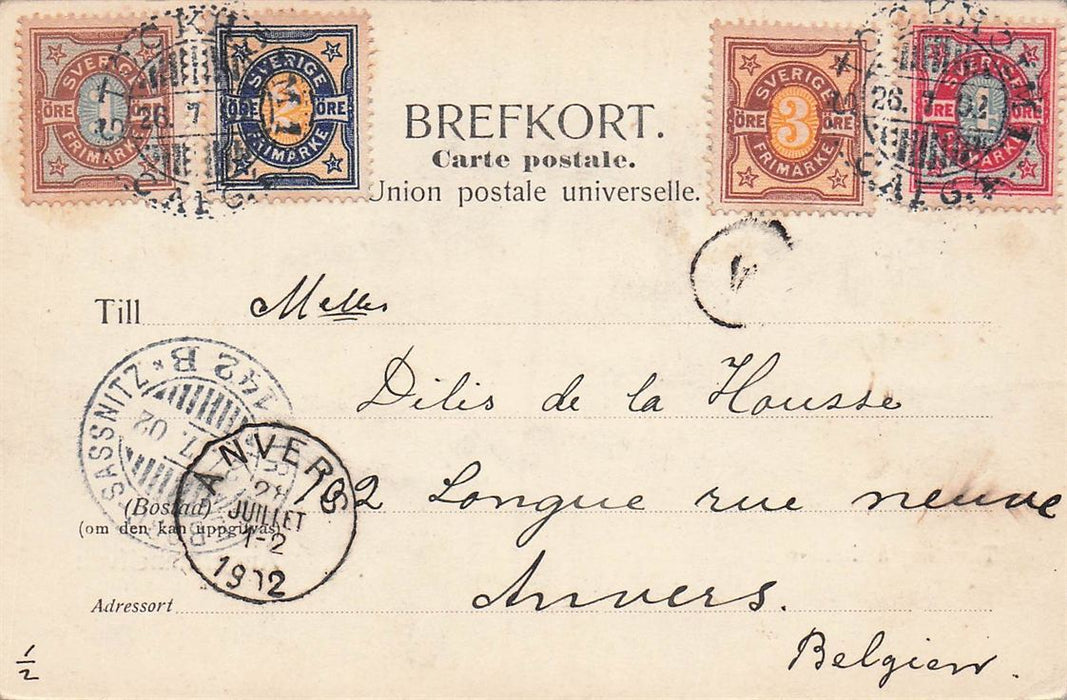 SVERIGE
ÖRE ÖRE
FRIMÄRKE
SVERIGE
ÖRE 2 ÖRE
FRIMÄRKE
SVERIGE
ÖRE 3 ÖRE
FRIMÄRKE
SVERIGE
ÖRE 1 ÖRE
FRIMÄRKE
26 7
26. 7 02
BREFKORT.
Carte postale.
Union postale universelle.
4
Till Melles
Dilis de la Housse
2 Longue rue neuve
Anvers.
Belgien.
SASSNITZ * 142 B
7. 02
ANVERS
28
JUILLET
1-2
1902
(Bostad)
(om den kan uppgifvas)
Adressort
1/2